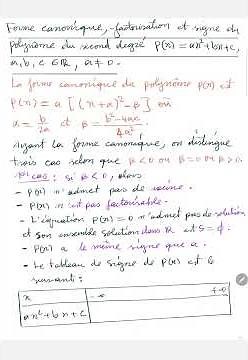 Forme canonique, factorisation et signe du
polynôme du second degré P(x) = ax²+bx+c,
a, b, c ∈ IR, a ≠ 0.
La forme canonique du polynôme P(x) est
P(x) = a [(x+α)² - β] où
α = b/2a et β = b²-4ac/4a².
Ayant la forme canonique, on distingue
trois cas selon que β < 0 ou β = 0 ou β > 0.
1er cas : si β < 0, alors
- P(x) n'admet pas de racine.
- P(x) n'est pas factorisable.
- L'équation P(x) = 0 n'admet pas de solution
et son ensemble solution dans IR est S = ∅.
- P(x) a le même signe que a.
- Le tableau de signe de P(x) est le
suivant :
x -∞ +∞
ax²+bx+c